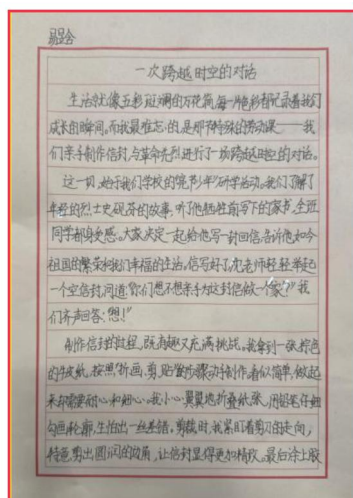 一次跨越时空的对话
生活就像五彩斑斓的万花筒,每一片色彩都记录着我们
成长的瞬间。而我最难忘的是那节特殊的劳动课——我
们亲手制作信封,与革命先烈进行了一场跨越时空的对话。
这一切,始于我们学校的"少年"研学活动。我们了解了
年轻的烈士史砚芬的故事,听了他牺牲前写下的家书,全班
同学都身受感。大家决定一起给他写一封回信,告诉他如今
祖国的繁荣和我们幸福的生活。信写好了,沈老师轻轻举起
一个空信封,问道:"你们想不想亲手为这封信做一个'家'?"我
们齐声回答:"想!"
制作信封的过程,既有趣又充满挑战。我拿到一张棕色
的牛皮纸,按照"折、画、剪、贴"的步骤动手制作。看似简单,做起
来却需要耐心和细心。我小心翼翼地折叠纸张,用铅笔仔细
勾画轮廓,生怕出一丝差错。剪裁时,我紧盯着剪刀的走向,
特意剪出圆润的边角,让信封显得更加精致。最后涂上胶